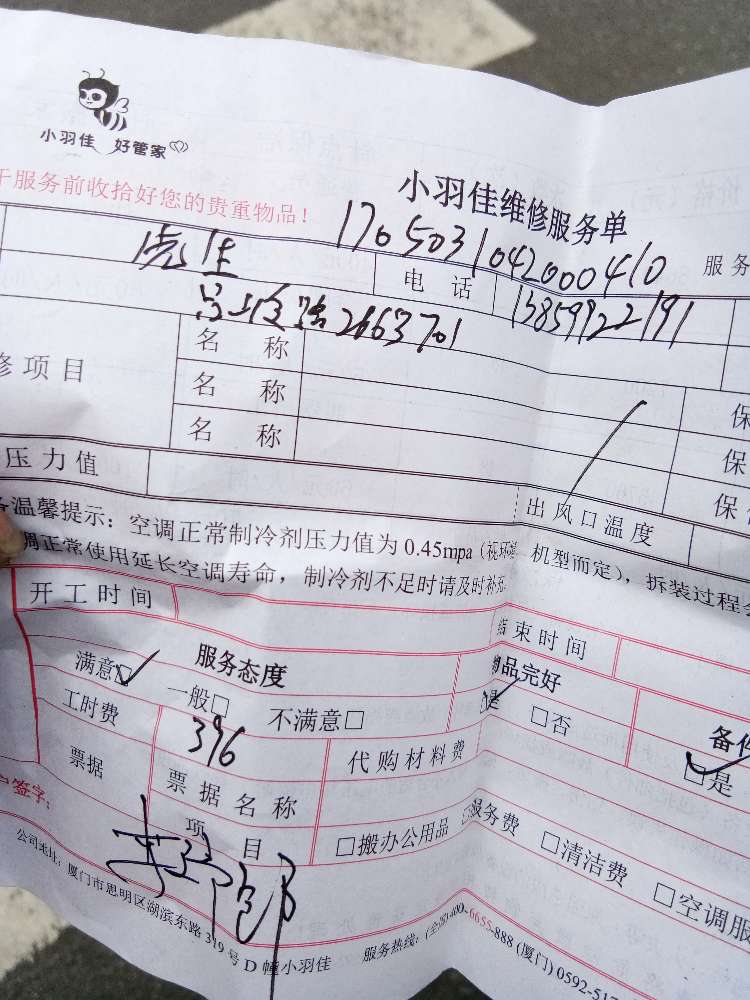 小羽佳 好管家
小羽佳维修服务单
服务前收拾好您的贵重物品！
17050310420000410
服务
电话 13859922191
2663701
修项目 名称
名称 保
名称 保
压力值 出风口温度 保
温馨提示：空调正常制冷剂压力值为0.45mpa（视环境、机型而定），拆装过程会
调正常使用延长空调寿命，制冷剂不足时请及时补充
开工时间 结束时间
服务态度 物品完好
满意☑ 一般□ 不满意□ ☑是 □否 备件
工时费 396 代购材料费 ☑是
票据 票据名称
项目 □搬办公用品 服务费 □清洁费 □空调服
签字：
公司地址：厦门市思明区湖滨东路319号D幢小羽佳 服务热线：(全国)400-6655-888 (厦门)0592-517